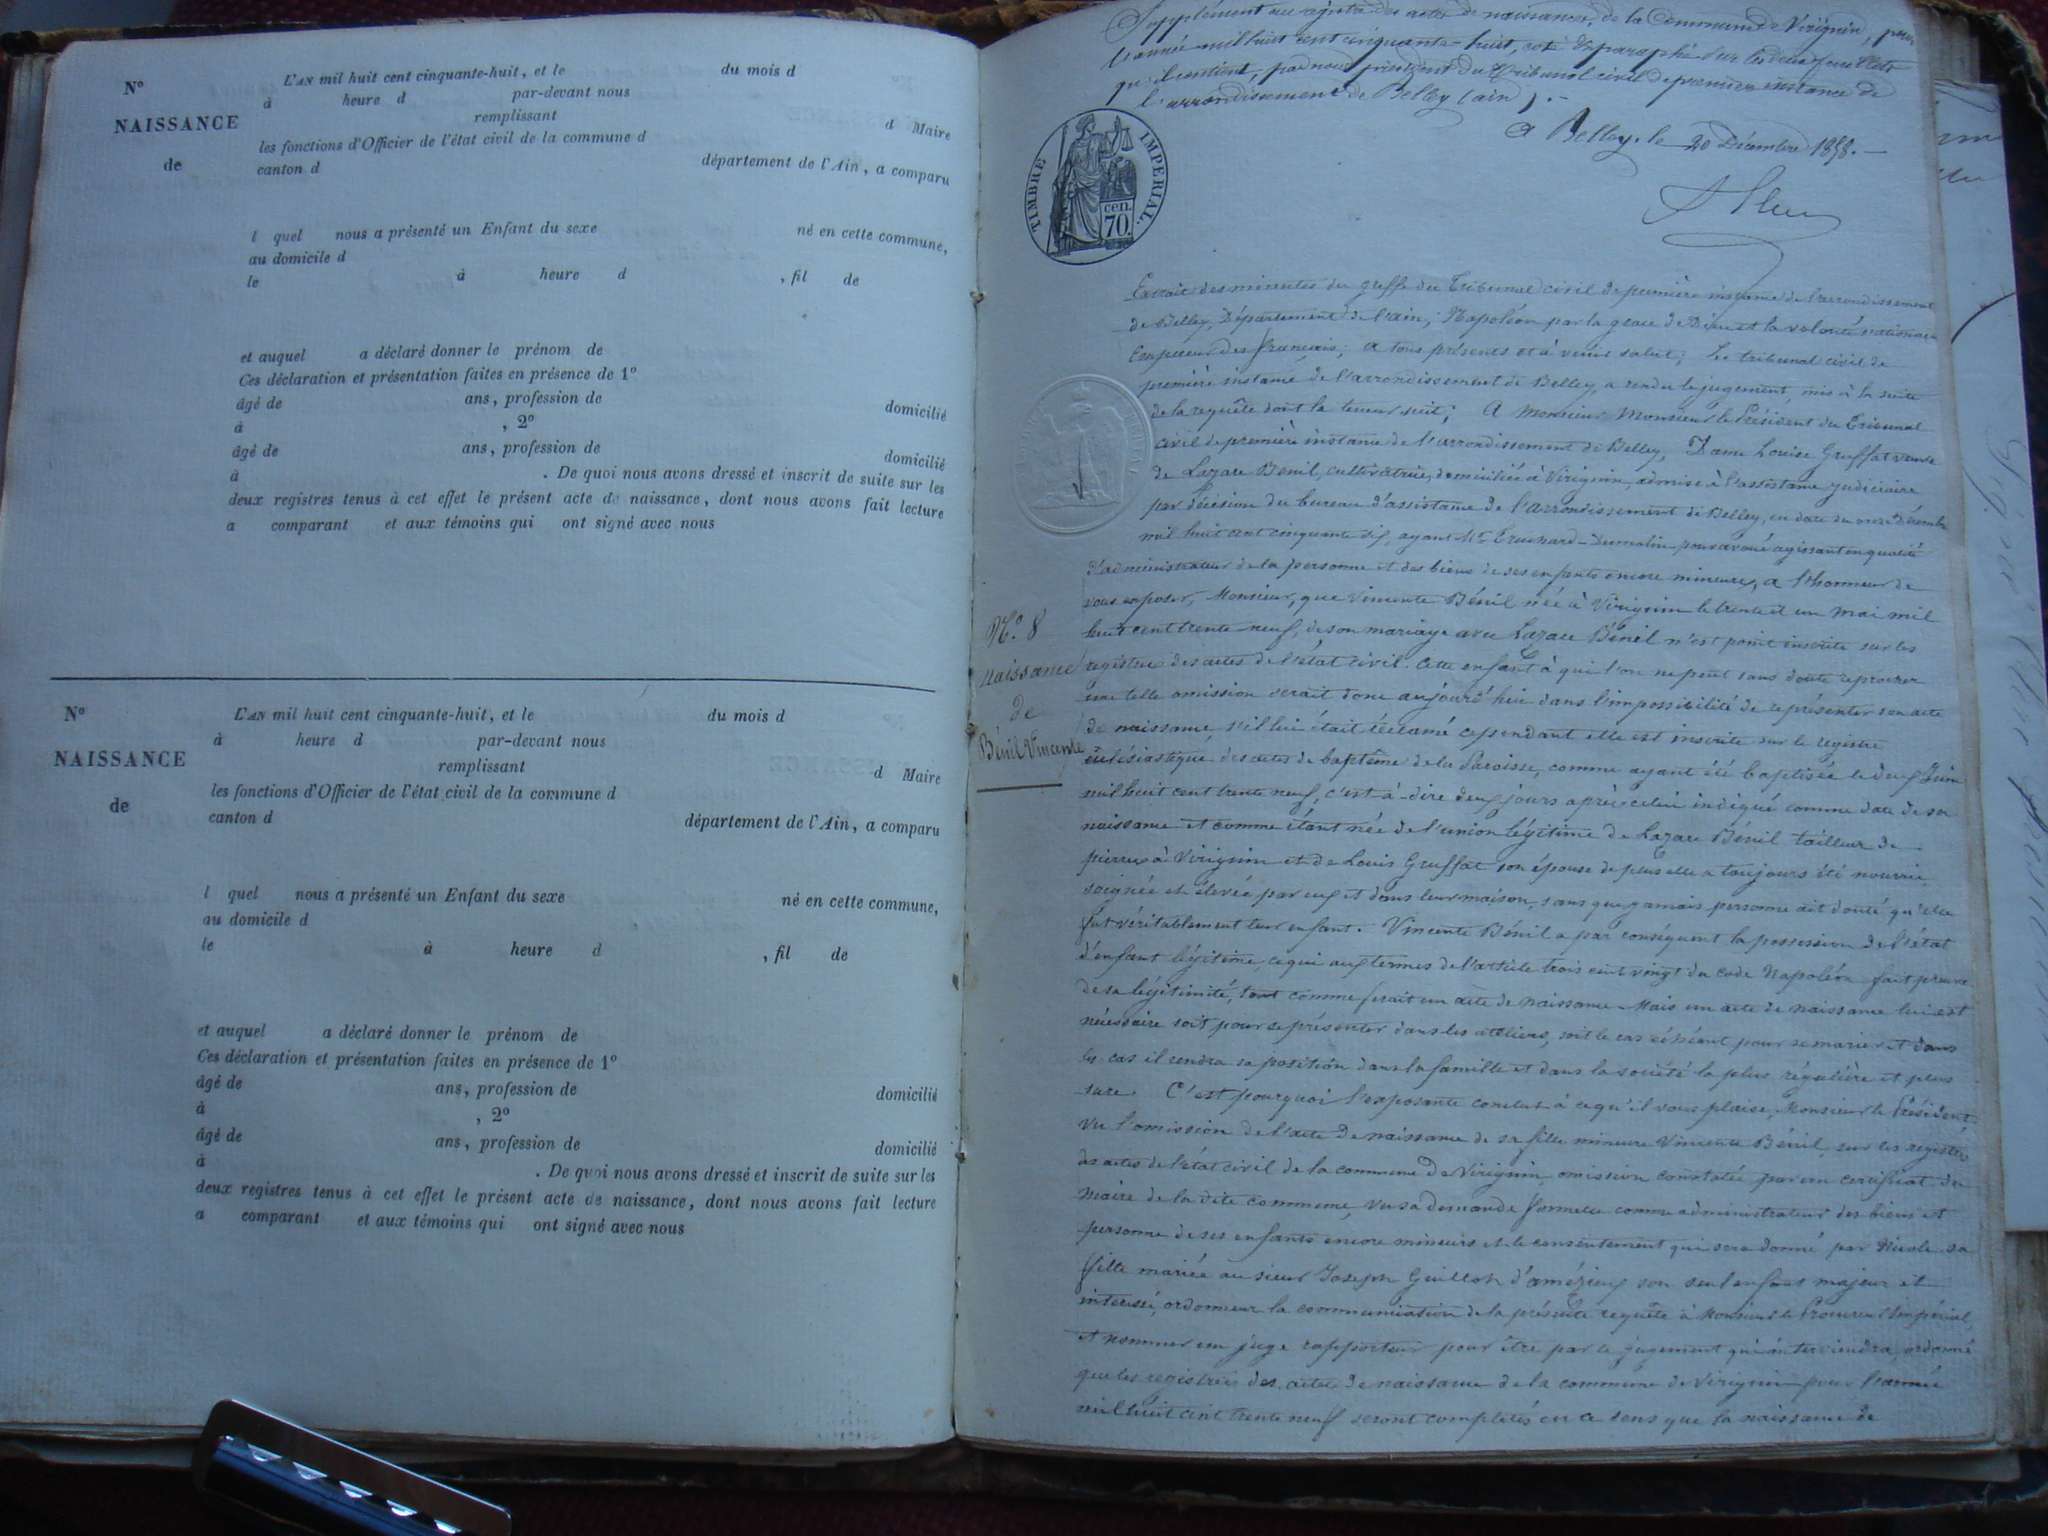 Nº
NAISSANCE
de
L'AN mil huit cent cinquante-huit, et le du mois d
à heure d par-devant nous
remplissant d Maire
les fonctions d'Officier de l'état civil de la commune d
canton d département de l'Ain, a comparu
l quel nous a présenté un Enfant du sexe né en cette commune,
au domicile d
le à heure d , fil de
et auquel a déclaré donner le prénom de
Ces déclaration et présentation faites en présence de 1º
âgé de ans, profession de domicilié
à , 2º
âgé de ans, profession de domicilié
à . De quoi nous avons dressé et inscrit de suite sur les
deux registres tenus à cet effet le présent acte de naissance, dont nous avons fait lecture
a comparant et aux témoins qui ont signé avec nous
Nº
NAISSANCE
de
L'AN mil huit cent cinquante-huit, et le du mois d
à heure d par-devant nous
remplissant d Maire
les fonctions d'Officier de l'état civil de la commune d
canton d département de l'Ain, a comparu
l quel nous a présenté un Enfant du sexe né en cette commune,
au domicile d
le à heure d , fil de
et auquel a déclaré donner le prénom de
Ces déclaration et présentation faites en présence de 1º
âgé de ans, profession de domicilié
à , 2º
âgé de ans, profession de domicilié
à . De quoi nous avons dressé et inscrit de suite sur les
deux registres tenus à cet effet le présent acte de naissance, dont nous avons fait lecture
a comparant et aux témoins qui ont signé avec nous
Supplément au registre des actes de naissance, de la Commune de Virignin, pour
l'année mil huit cent cinquante-huit, coté et paraphé sur les deux feuillets
qu'il contient, par nous président du Tribunal civil de première instance de
l'arrondissement de Belley (ain).
à Belley, le 20 Décembre 1858.
TIMBRE IMPÉRIAL.
cen. 70.
Extrait des minutes du greffe du Tribunal civil de première instance de l'arrondissement
de Belley, Département de l'ain; Napoléon par la grace de Dieu et la volonté nationale
Empereur des français; à tous présents et à venir salut; Le tribunal civil de
première instance de l'arrondissement de Belley, a rendu le jugement, mis à la suite
de la requête dont la teneur suit; A Monsieur Monsieur le Président du Tribunal
civil de première instance de l'arrondissement de Belley, Dame Louise Gruffat veuve
de Lazare Bénil, cultivatrice, domiciliée à Virignin, admise à l'assistance judiciaire
par décision du bureau d'assistance de l'arrondissement de Belley, en date du onze Décembre
mil huit cent cinquante six, ayant Mᵉ pour avoué agissant en qualité
d'administrateur de la personne et des biens de ses enfants encore mineurs, a l'honneur de
vous exposer, Monsieur, que Vincente Bénil née à Virignin le trente et un mai mil
huit cent trente neuf, de son mariage avec Lazare Bénil n'est point inscrite sur les
registres des actes de l'état civil. Cette enfant à qui l'on ne peut sans doute reprocher
une telle omission serait donc aujourd'hui dans l'impossibilité de représenter son acte
de naissance s'il lui était réclamé cependant elle est inscrite sur le registre
ecclésiastique des actes de baptême de la Paroisse, comme ayant été baptisée le deux Juin
mil huit cent trente neuf, c'est-à-dire deux jours après celui indiqué comme date de sa
naissance et comme étant née de l'union légitime de Lazare Bénil tailleur de
pierres à Virignin et de Louis Gruffat son épouse de plus elle a toujours été nourrie
soignée et élevée par eux et dans leur maison, sans que jamais personne ait douté qu'elle
fut véritablement leur enfant. Vincente Bénil a par conséquent la possession de l'état
d'enfant légitime, ce qui aux termes de l'article trois cent vingt du code Napoléon fait preuve
de sa légitimité, tout comme ferait un acte de naissance. Mais un acte de naissance lui est
nécessaire soit pour se présenter dans les ateliers, soit le cas échéant pour se marier et dans
les cas il rendra sa position dans la famille et dans la société la plus régulière et plus
sure. C'est pourquoi l'exposante conclut à ce qu'il vous plaise, Monsieur le Président
vu l'omission de l'acte de naissance de sa fille mineure Vincente Bénil, sur les registres
des actes de l'état civil de la commune de Virignin omission constatée par un certificat du
maire de la dite commune, vu sa demande formelle comme administrateur des biens et
personne de ses enfants encore mineurs et le consentement qui sera donné par Nicole sa
fille mariée au sieur Joseph Guillot d'amézieux son seul enfant majeur et
intéressé, ordonner la communication de la présente requête à Monsieur le Procureur Impérial
et nommer un juge rapporteur pour être par le jugement qui interviendra, ordonné
que les registres des actes de naissance de la commune de Virignin pour l'année
mil huit cent trente neuf seront complétés en ce sens que la naissance de
Nº 8
naissance
de
Bénil Vincente